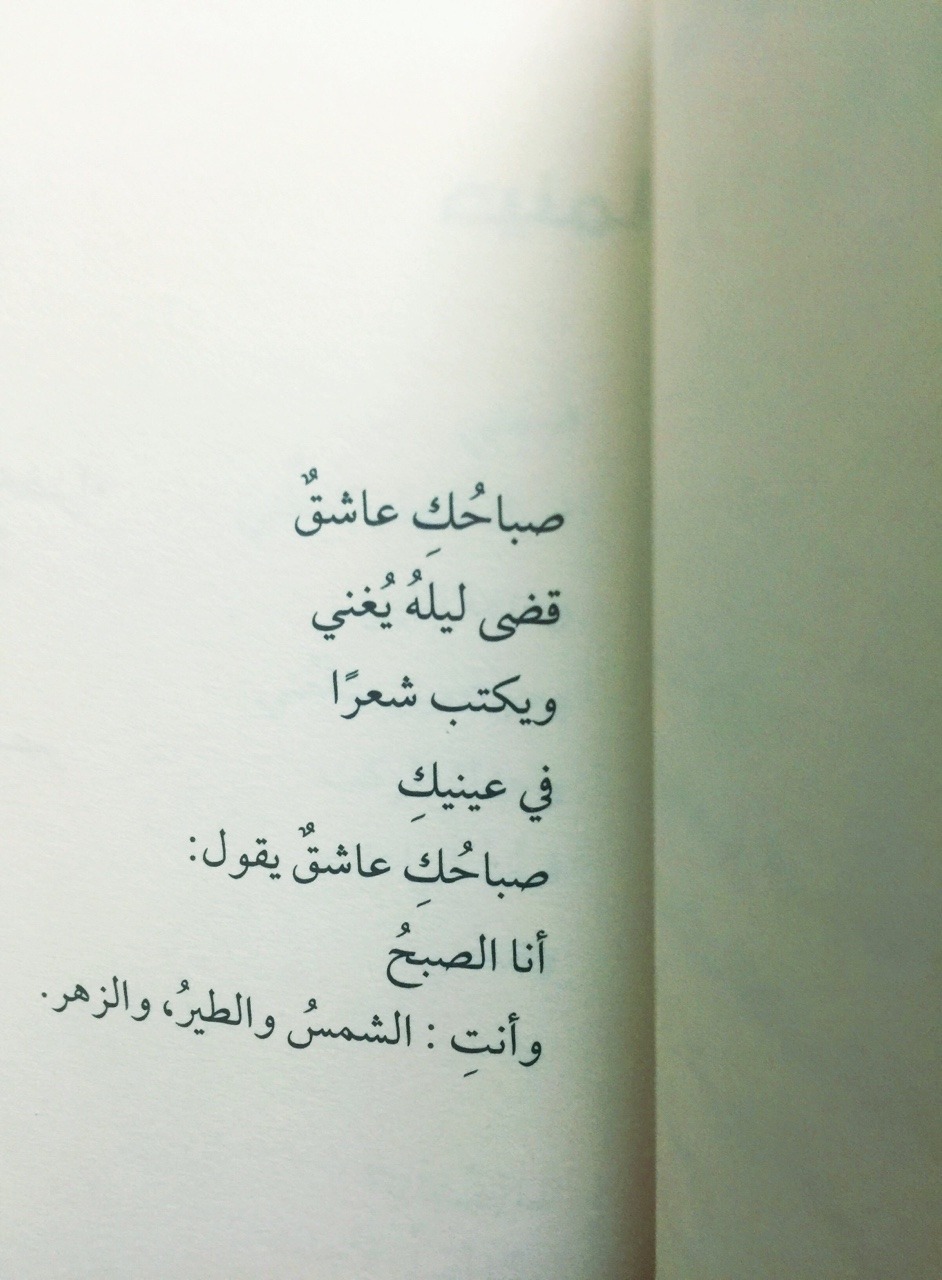 صباحُكِ عاشقٌ
قضى ليلهُ يُغني
ويكتب شعرًا
في عينيكِ
صباحُكِ عاشقٌ يقول:
أنا الصبحُ
وأنتِ : الشمسُ والطيرُ، والزهر.